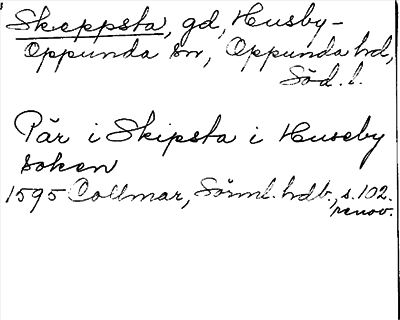 Skeppsta, gd, Husby-
Oppunda sn, Oppunda hd,
Söd. l.
Pär i Skipsta i Huseby
soken
1595 Collmar, Sörml. hdb., s. 102.
renov.